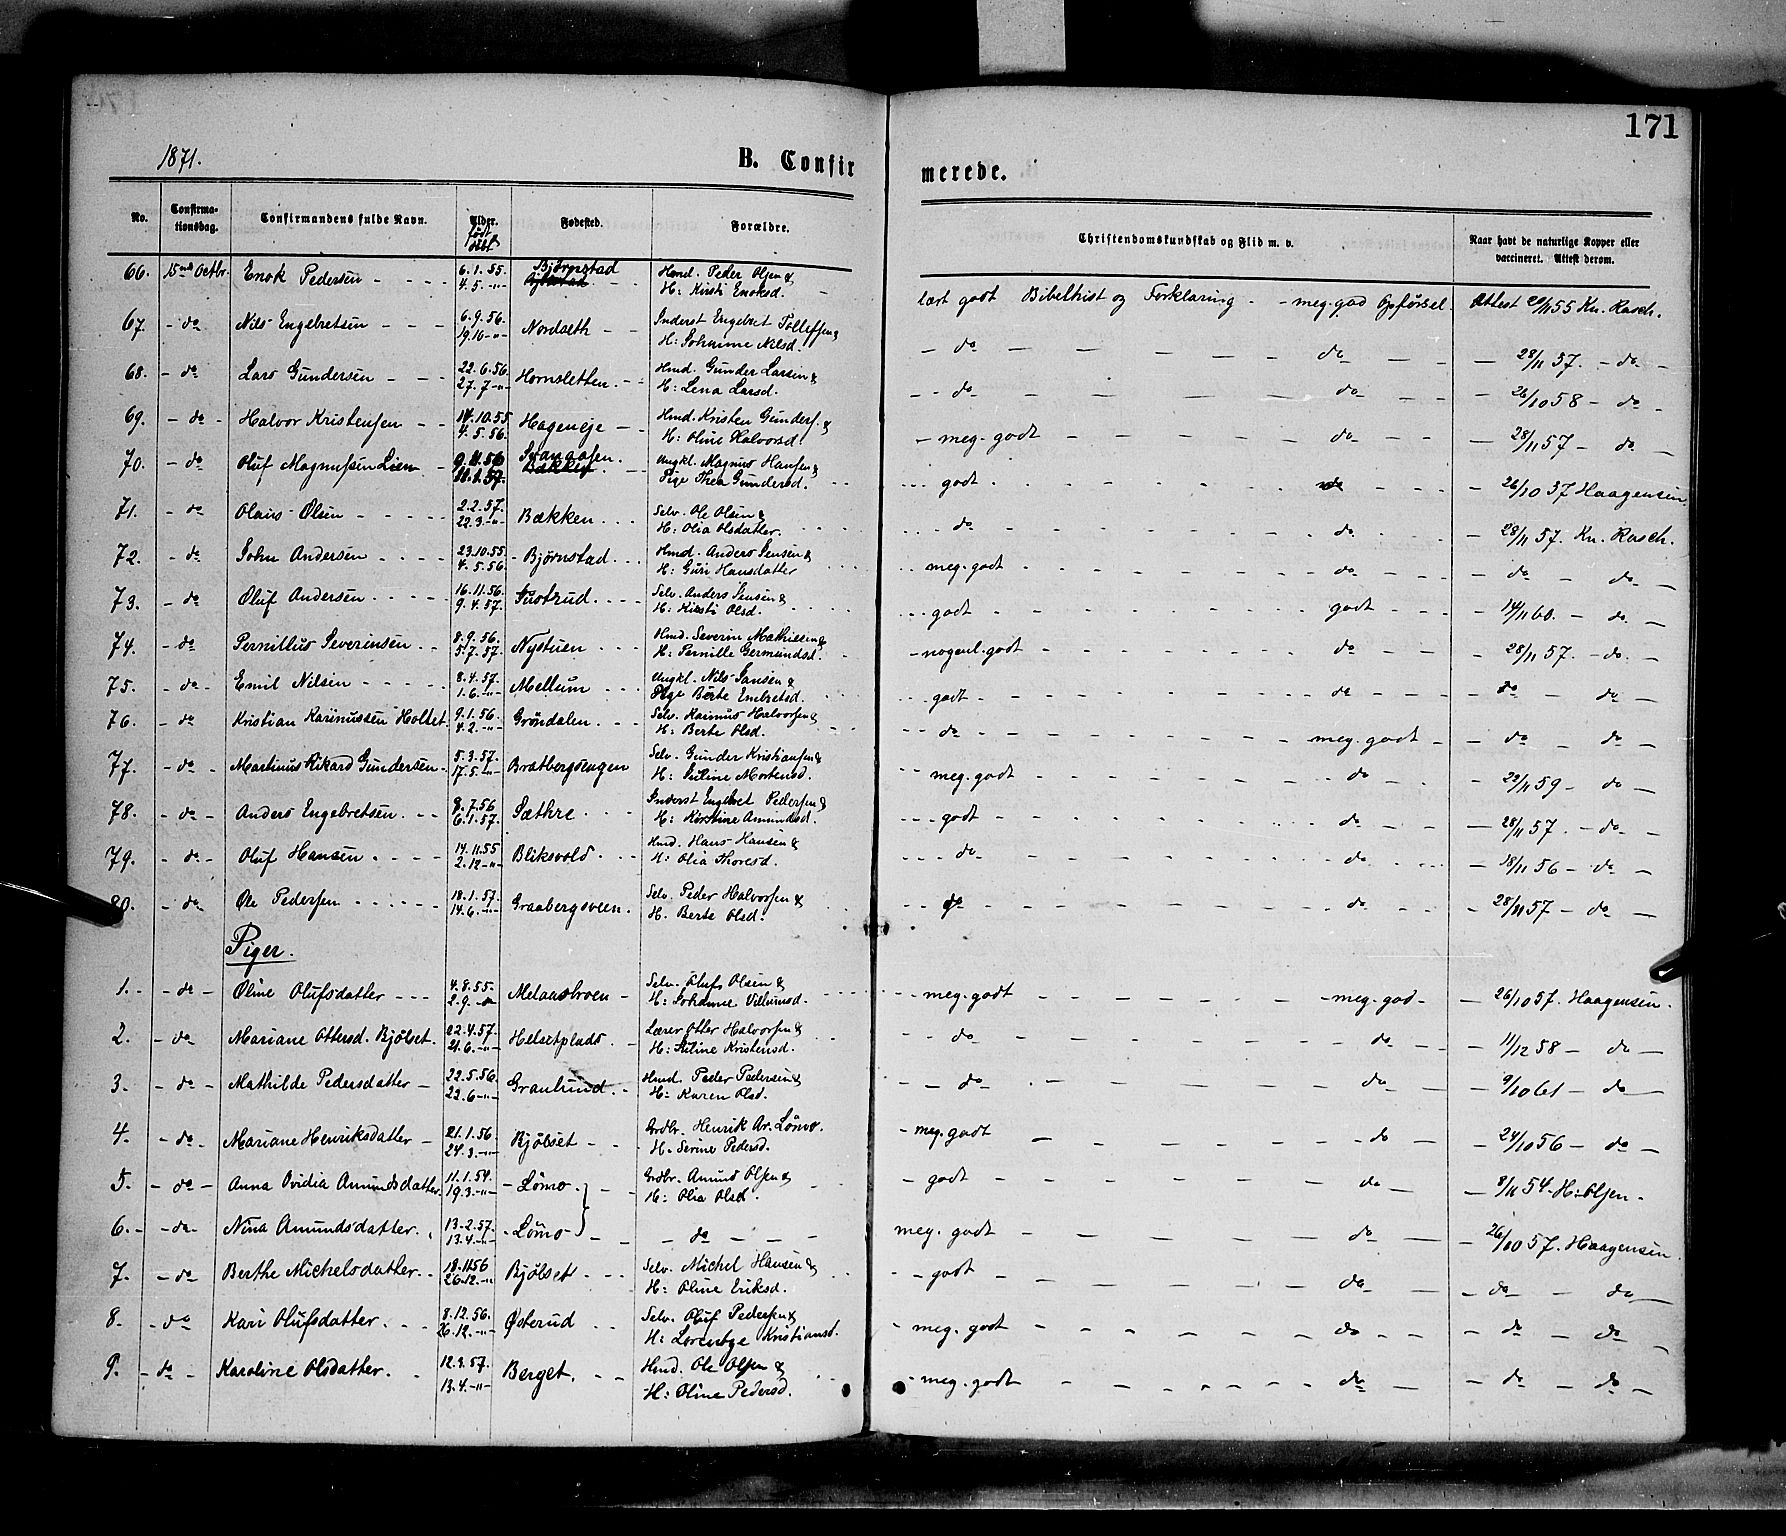 171
1871.
B. Confirmerede.
No. Confirmationsdag. Confirmandens fulde Navn. Alder. født døbt Fødested. Forældre. Christendomskundskab og Flid m. v. Naar havt de naturlige Kopper eller vaccineret. Attest derom.
66. 15 Octbr. Enok Pedersen - - - 6.1.55. 4.5.-"- Bjørnstad Hmd. Peder Olsen & H: Kirsti Enoksd. lært godt Bibelhist og Forklaring - - meg. god Opførsel. Attest 55 Kn. Rasch.
67. - do Nils Engebretsen - - - 6.9.56. 19.10-"- Nordseth - - Inderst Engebret Tollefsen & H: Johanne Nilsd. - do - - - do - - 28/11 57. - do -
68. - do - Lars Gundersen - - - 22.6.56. 27.7-"- Hornsletten. - - Hmd. Gunder Larsen & H: Lena Larsd. - do - - do - - 26/10 58 - do -
69. - do - Halvor Kristensen - - 14.10.55 4.5.56. Hageneje - - Hmd. Kristen Gunders. & H: Oline Halvorsd. - meg. godt - - do - - 28/11 57 - do -
70. - do Oluf Magnussen Lien - 9.11.56 Svenaasen. Ungkl. Magnus Hansen & Pige Thea Gundersd. godt - - do - - 26/10 57 Haagensen.
71. - do Olaus Olsen - - - 2.2.57. 22.3-"- Bækken. . . . Selv. Ole Olsen & H: Olia Olsdatter. do - - do - - 28/11 57. Kn. Rasch.
72. - do John Andersen - - - 23.10.55. 4.5.56. - Bjørnstad. . . Hmd. Anders Jensen & H: Guri Hansdatter meg. godt - - do - - do - do -
73. - do Oluf Andersen - - - 16.11.56. 9.4.57. Anders Jensen & H: Kirsti Olsd. godt - - godt - - 14/11 60. - do -
74. - do Pernillus Severinsen - - 8.9.56. 5.7.57. Nystuen - - Hmd. Severin Mathiesen & H: Pernille Germundsd. - nogenl. godt - - do - - 28/11 57. - do. -
75. - do - Emil Nilsen - - - 8.4.57. 1.6.-"- Mellum - - - Ungkl. Nils Jansen & Pige Berte Embretsd. godt - - do - - do - do -
76. - do Kristian Karinussen Holtet. 9.1.56. 4.2.-"- Grøndalen. - - Selv. Karinus Halvorsen & H: Berte Olsd. do - - meg. godt - - do - do -
77. - do - Martinus Rikard Gundersen. 5.3.57. 17.5.-"- Bratbergsengen Selv. Gunder Kristiansen & H: Juline Mortensd. meg. godt - - do - - 22/11 59 - do -
78. - do - Anders Engebretsen. - - 8.7.56 6.1.57. Sæthre. - - Inderst Engebret Pedersen & H: Kerstine Amundsd. godt - - do - - 28/11 57. - do -
79. - do - Oluf Hansen. - - - 14.11.55 2.12-"- Bliksvold. - - Hmd. Hans Hansen & H: Olia Thoresd. do - - do - - 18/11 56 - do -
80. - do - Ole Pedersen . . . . 18.1.57. 14.6.-"- Graabergsveen. Selv. Peder Halvorsen & H. Berte Olsd. do - - do - - 28/11 57 - do -
Piger.
1. - - do - Oline Olufsdatter - - - 4.8.55. 2.9.-"- Melaasbroen - Selv. Olufs Olsen & H: Johanne Villumsd. meg. godt - - meg. god - - 26/10 57. Haagensen.
2. - do Mariane Ottersd. Bjølset. 22.4.57. 21.6.-"- Helsetplads. - Lærer Otter Halvorsen & H: Juline Kristensd. do - - do - - 11/12 58 - do -
3. - do - Mathilde Pedersdatter - 22.5.56. 22.6-"- Graulund. - Hmd. Peder Pedersen & H: Karen Olsd. do - - do - - 9/10 61 - do -
4. - do - Mariane Henriksdatter - 21.1.56. 24.3.-"- Bjølset - - Grdbr. Henrik Ar. Lømo. H. Serine Pedersd. - meg. godt - - do - - 24/10 56 - do -
5. - do - Anna Ovidia Amundsdatter. 11.1.54. 19.3-"- - Lømo - - Grdbr. Amund Olsen & H: Olia Olsd. - godt - - do - - 8/11 54 - H. Olsen -
6. - - do - Nina Amundsdatter. 13.2.57. 13.4.-"- - Lømo - - - do - - - meg. godt - - do - - 26/10 57. Haagensen.
7. - do Berthe Michelsdatter. - - 18.11.56 26.12.-"- Bjølset - - - Selv. Michel Hansen & H: Oline Eriksd. - godt - - do - - do - do -
8. - do Kari Olufsdatter. - - 8.12.56. 26.12.-"- Østerud - - Selv. Oluf Pedersen & H: Lorentze Kristiansd. - meg. godt - - do - - do - do -
9. - do - Karoline Olsdatter. - 12.3.57. 13.4.-"- Berget. - - Hmd. Ole Olsen & H: Oline Pedersd. - meg. godt - - do - - do - do -